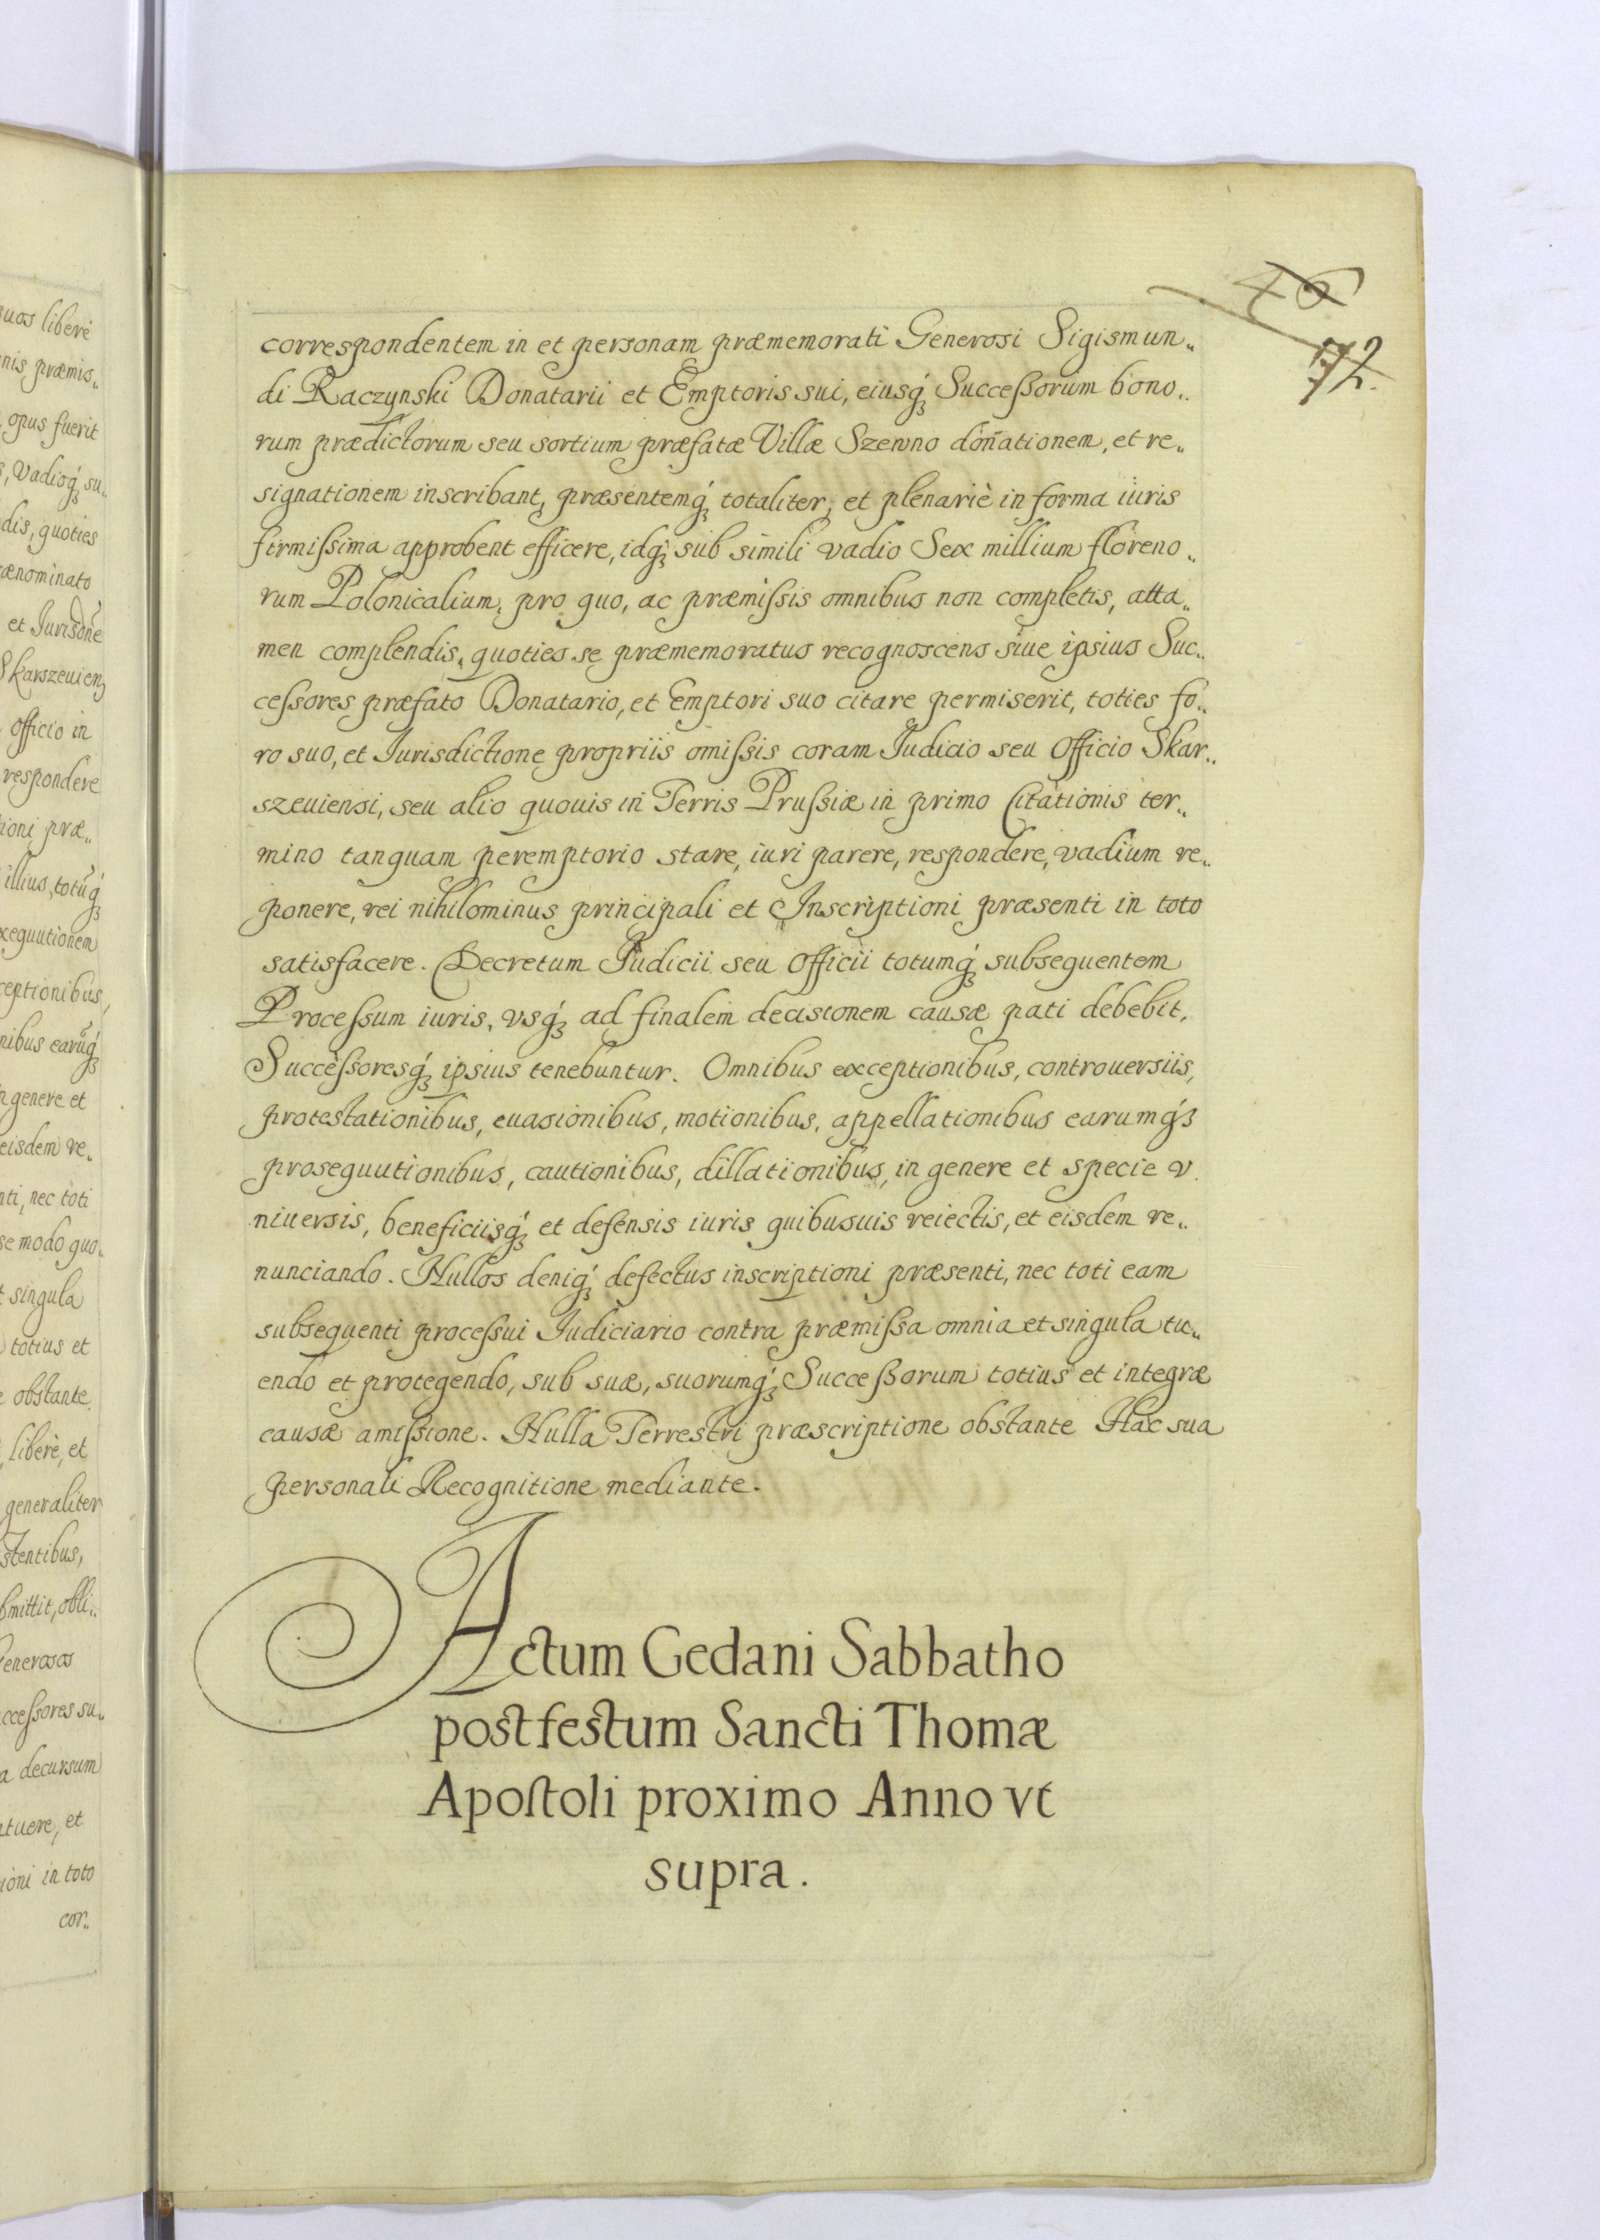 uos liberè
nis præmis„
opus fuerit
s, vadioq́ꝫ su„
dis, quoties
ænominato
et Jurisdone
Skarszeuienꝫ
officio in
respondere
tioni præ„
illius, totuq́ꝫ
xequutionem
ceptionibus,
nibus earuq́ꝫ
n genere et
eisdem re„
nti, nec toti
se modo quo„
t singula
totius et
e obstante
, liberè, et
generaliter
stentibus,
bmittit, obli„
Generosos
ccessores su„
a decursum
tuere, et
ioni in toto
cor„
46
72.
correspondentem in et personam præmemorati Generosi Sigismun„
di Raczynski Donatarii et Emptoris sui, eiusq́ꝫ Succeſsorum bono„
rum prædictorum seu sortium præfatæ Villæ Szewno doñationem, et re„
signationem inscribant, præsentemq́ꝫ totaliter, et plenariè in forma iuris
firmiſsima approbent efficere, idq́ꝫ sub simili vadio Sex millium floreno„
rum Polonicalium, pro quo, ac præmiſsis omnibus non completis, atta„
men complendis, quoties se præmemoratus recognoscens siue ipsius Suc„
ceſsores præfato Donatario, et Emptori suo citare permiserit, toties fo„
ro suo, et Jurisdictione propriis omiſsis coram Judicio seu Officio Skar„
szeuiensi, seu alio quouis in Terris Pruſsiæ in primo Citationis ter„
mino tanquam peremptorio stare, iuri parere, respondere, vadium re„
ponere, rei nihilominus principali et Inscriptioni præsenti in toto
satisfacere. Decretum Judicii seu Officii totumq́ꝫ subsequentem
Proceſsum iuris, vsq́ꝫ ad finalem decisionem causæ pati debebit,
Succeſsoresq́ꝫ ipsius tenebuntur. Omnibus exceptionibus, controuersiis,
protestationibus, euasionibus, motionibus, appellationibus earumq́ꝫ
prosequutionibus, cautionibus, dillationibus, in genere et specie v„
niuersis, beneficiisq́ꝫ et defensis iuris quibusuis reiectis, et eisdem re„
nunciando. Nullos deniq́ꝫ defectus inscriptioni præsenti, nec toti eam
subsequenti proceſsui Judiciario contra præmiſsa omnia et singula tu„
endo et protegendo, sub suæ, suorumq́ꝫ Succeſsorum totius et integræ
causæ amiſsione. Nulla Terrestri præscriptione obstante Hac sua
personali Recognitione mediante.
Actum Gedani Sabbatho
post festum Sancti Thomæ
Apostoli proximo Anno vt
supra.